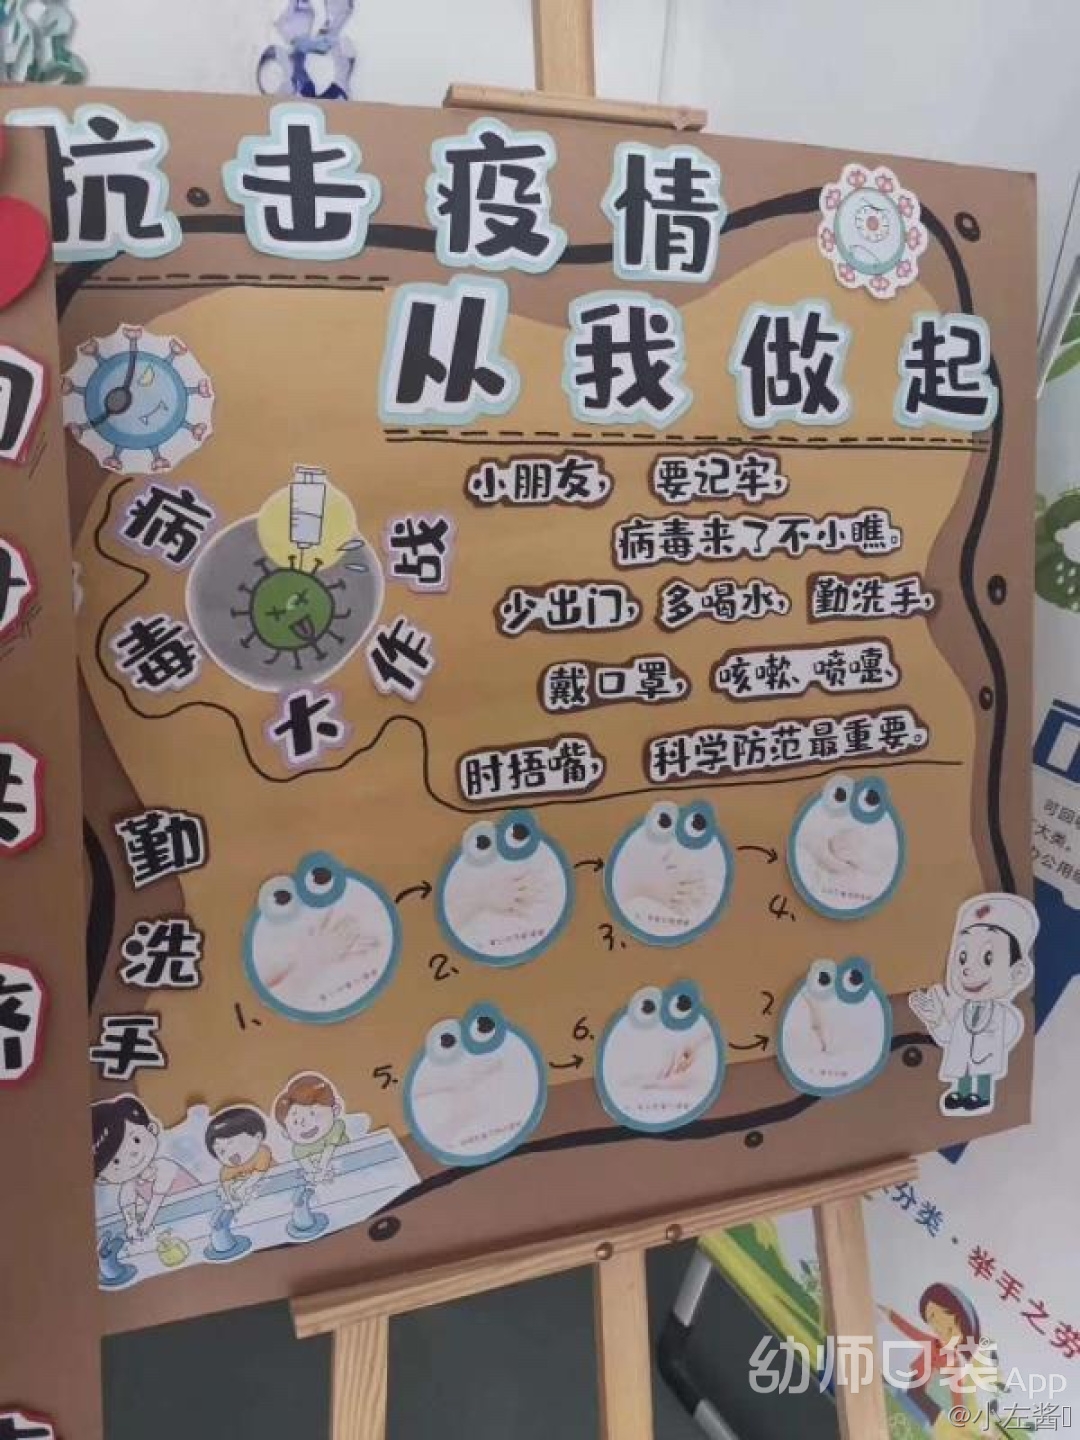 抗击疫情
从我做起
病毒大作战
小朋友， 要记牢，
病毒来了不小瞧。
少出门， 多喝水， 勤洗手，
戴口罩， 咳嗽、喷嚏、
肘捂嘴， 科学防范最重要。
勤洗手
1、
2、
3、
4、
5、
6、
7、
可回收
大类。
办公用纸
分类·举手之劳
幼师口袋App
@小左酱